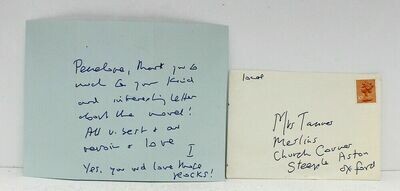 Penelope, thank you so
much for your kind
and interesting letter
about the novel!
All v. best & au
revoir & love
I
Yes, you wd love those
rocks!
local
Mrs Tanner
Merlins
Church Corner
Steeple Aston
Oxford